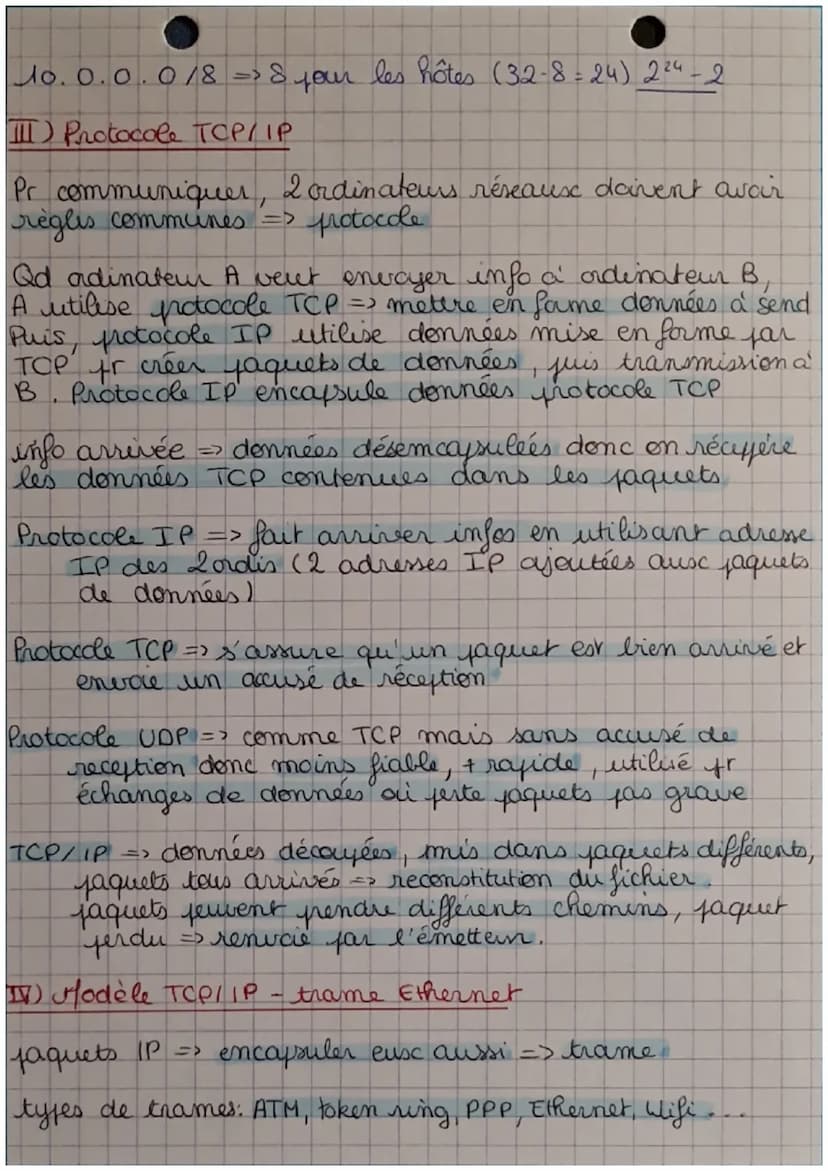 10.0.0.0/8 => 8 pour les hôtes (32-8=24) 2²⁴-2
III) Protocole TCP/IP
Pr communiquer, 2 ordinateurs réseaux doivent avoir
règles communes => protocole
Qd ordinateur A veut envoyer info à ordinateur B,
A utilise protocole TCP => mettre en forme données à send
Puis, protocole IP utilise données mise en forme par
TCP pr créer paquets de données, puis transmission à
B. Protocole IP encapsule données protocole TCP
info arrivée => données désemcapsulées donc on récupère
les données TCP contenues dans les paquets
Protocole IP => fait arriver infos en utilisant adresse
IP des 2 ordis (2 adresses IP ajoutées aux paquets
de données)
Protocole TCP => s'assure qu'un paquet est bien arrivé et
envoie un accusé de réception
Protocole UDP => comme TCP mais sans accusé de
reception donc moins fiable, + rapide, utilisé pr
échanges de données où perte paquets pas grave
TCP/IP => données découpées, mis dans paquets différents,
paquets tous arrivés => reconstitution du fichier.
paquets peuvent prendre différents chemins, paquet
perdu => renvoié par l'émetteur.
IV) Modèle TCP/IP - trame Ethernet
paquets IP => encapsuler eux aussi => trame
types de trames: ATM, token ring, PPP, Ethernet, Wifi ...